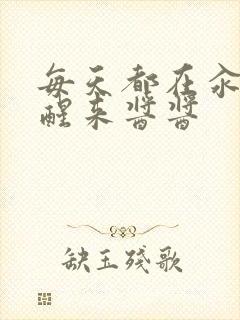 每天都在汆
醒来酱酱
缺玉残歌